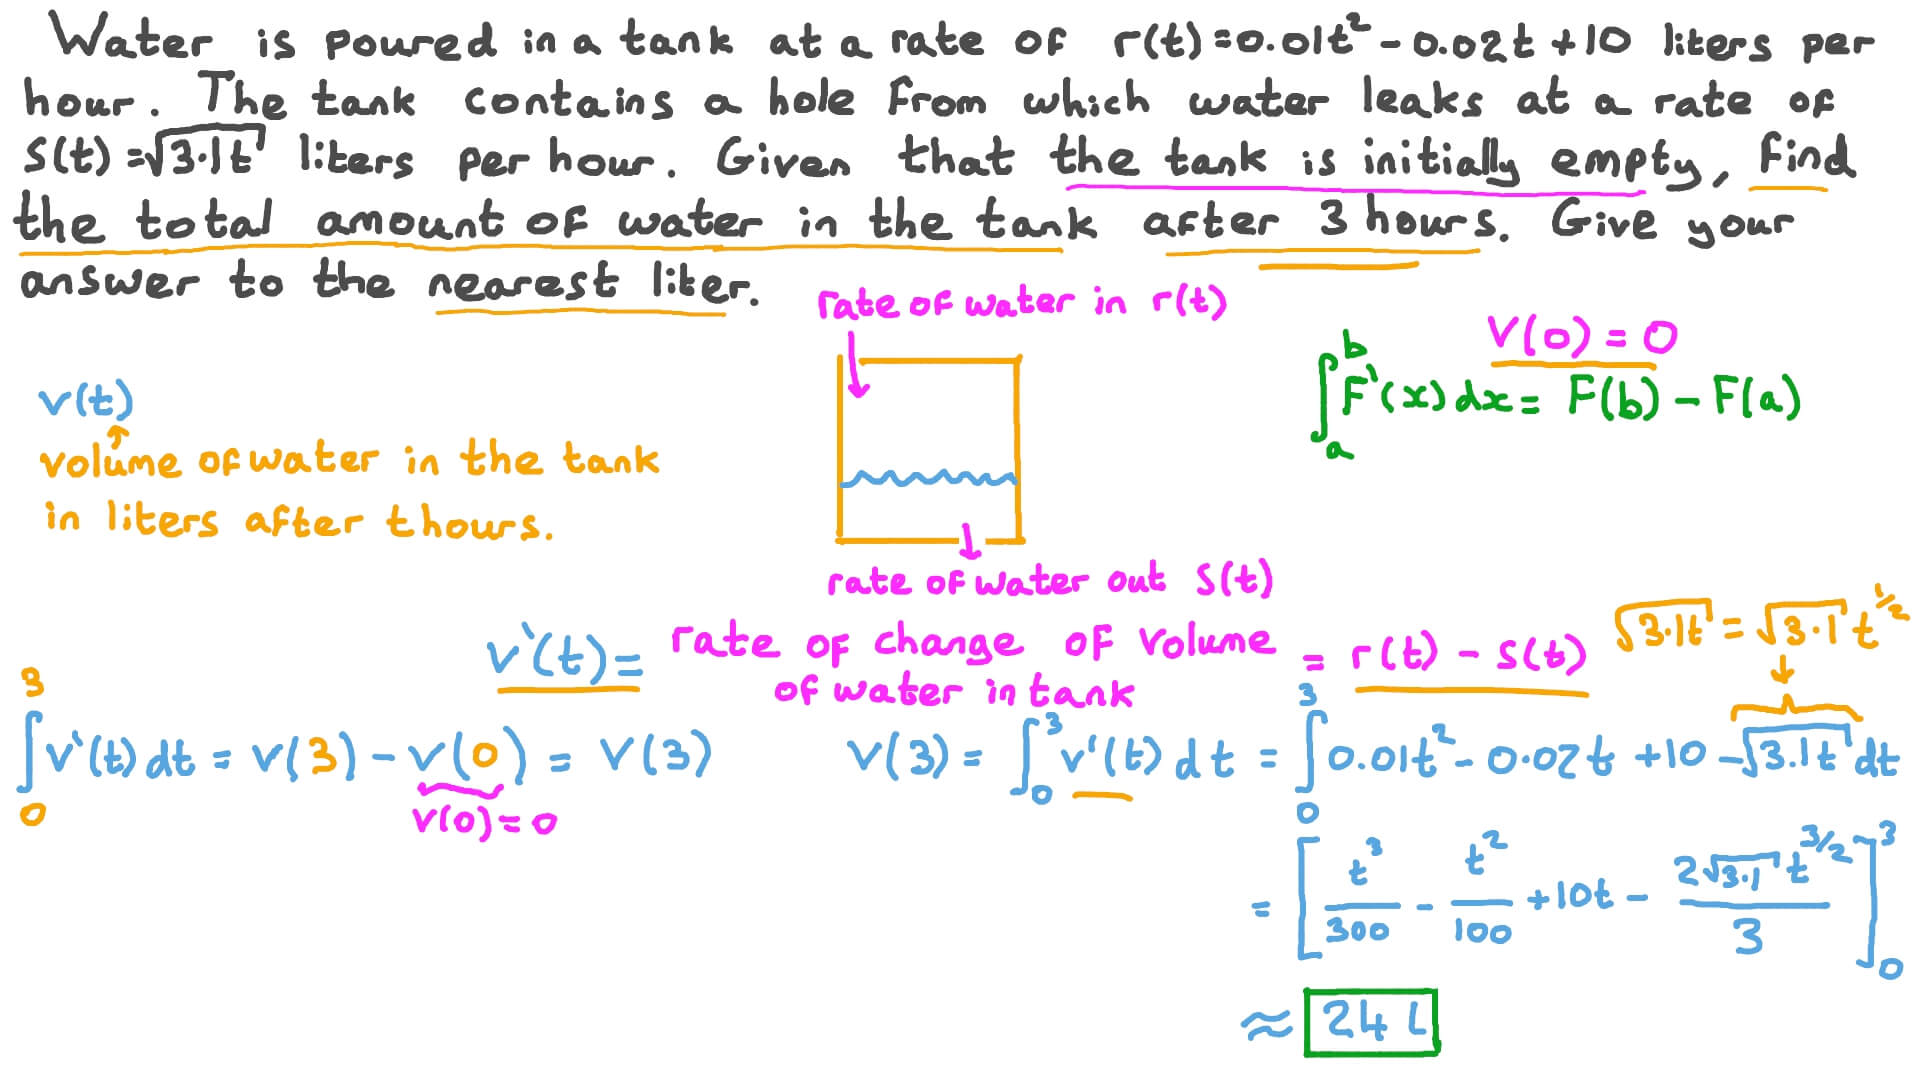 Water is poured in a tank at a rate of r(t)=0.01t²-0.02t+10 liters per
hour. The tank contains a hole from which water leaks at a rate of
s(t)=√3.1t liters per hour. Given that the tank is initially empty, find
the total amount of water in the tank after 3 hours. Give your
answer to the nearest liter.
rate of water in r(t)
V(0)=0
∫_a^b F'(x)dx = F(b)-F(a)
v(t)
volume of water in the tank
in liters after t hours.
rate of water out s(t)
v'(t)= rate of change of volume of water in tank = r(t)-s(t)
√3.1t = √3.1 t^1/2
∫_0^3 v'(t)dt = v(3)-v(0) = v(3)
v(0)=0
v(3) = ∫_0^3 v'(t)dt = ∫_0^3 0.01t²-0.02t+10-√3.1t dt
= [t³/300 - t²/100 + 10t - 2√3.1 t^3/2/3]_0^3
≈ 24 L